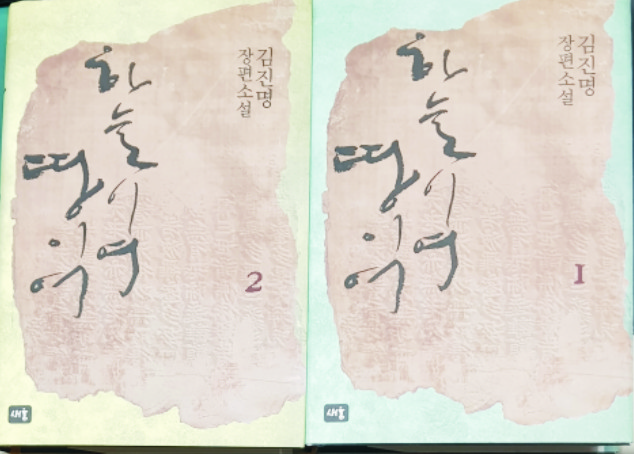 하늘이여
땅이여
김진명
장편소설
2
새움
하늘이여
땅이여
김진명
장편소설
1
새움